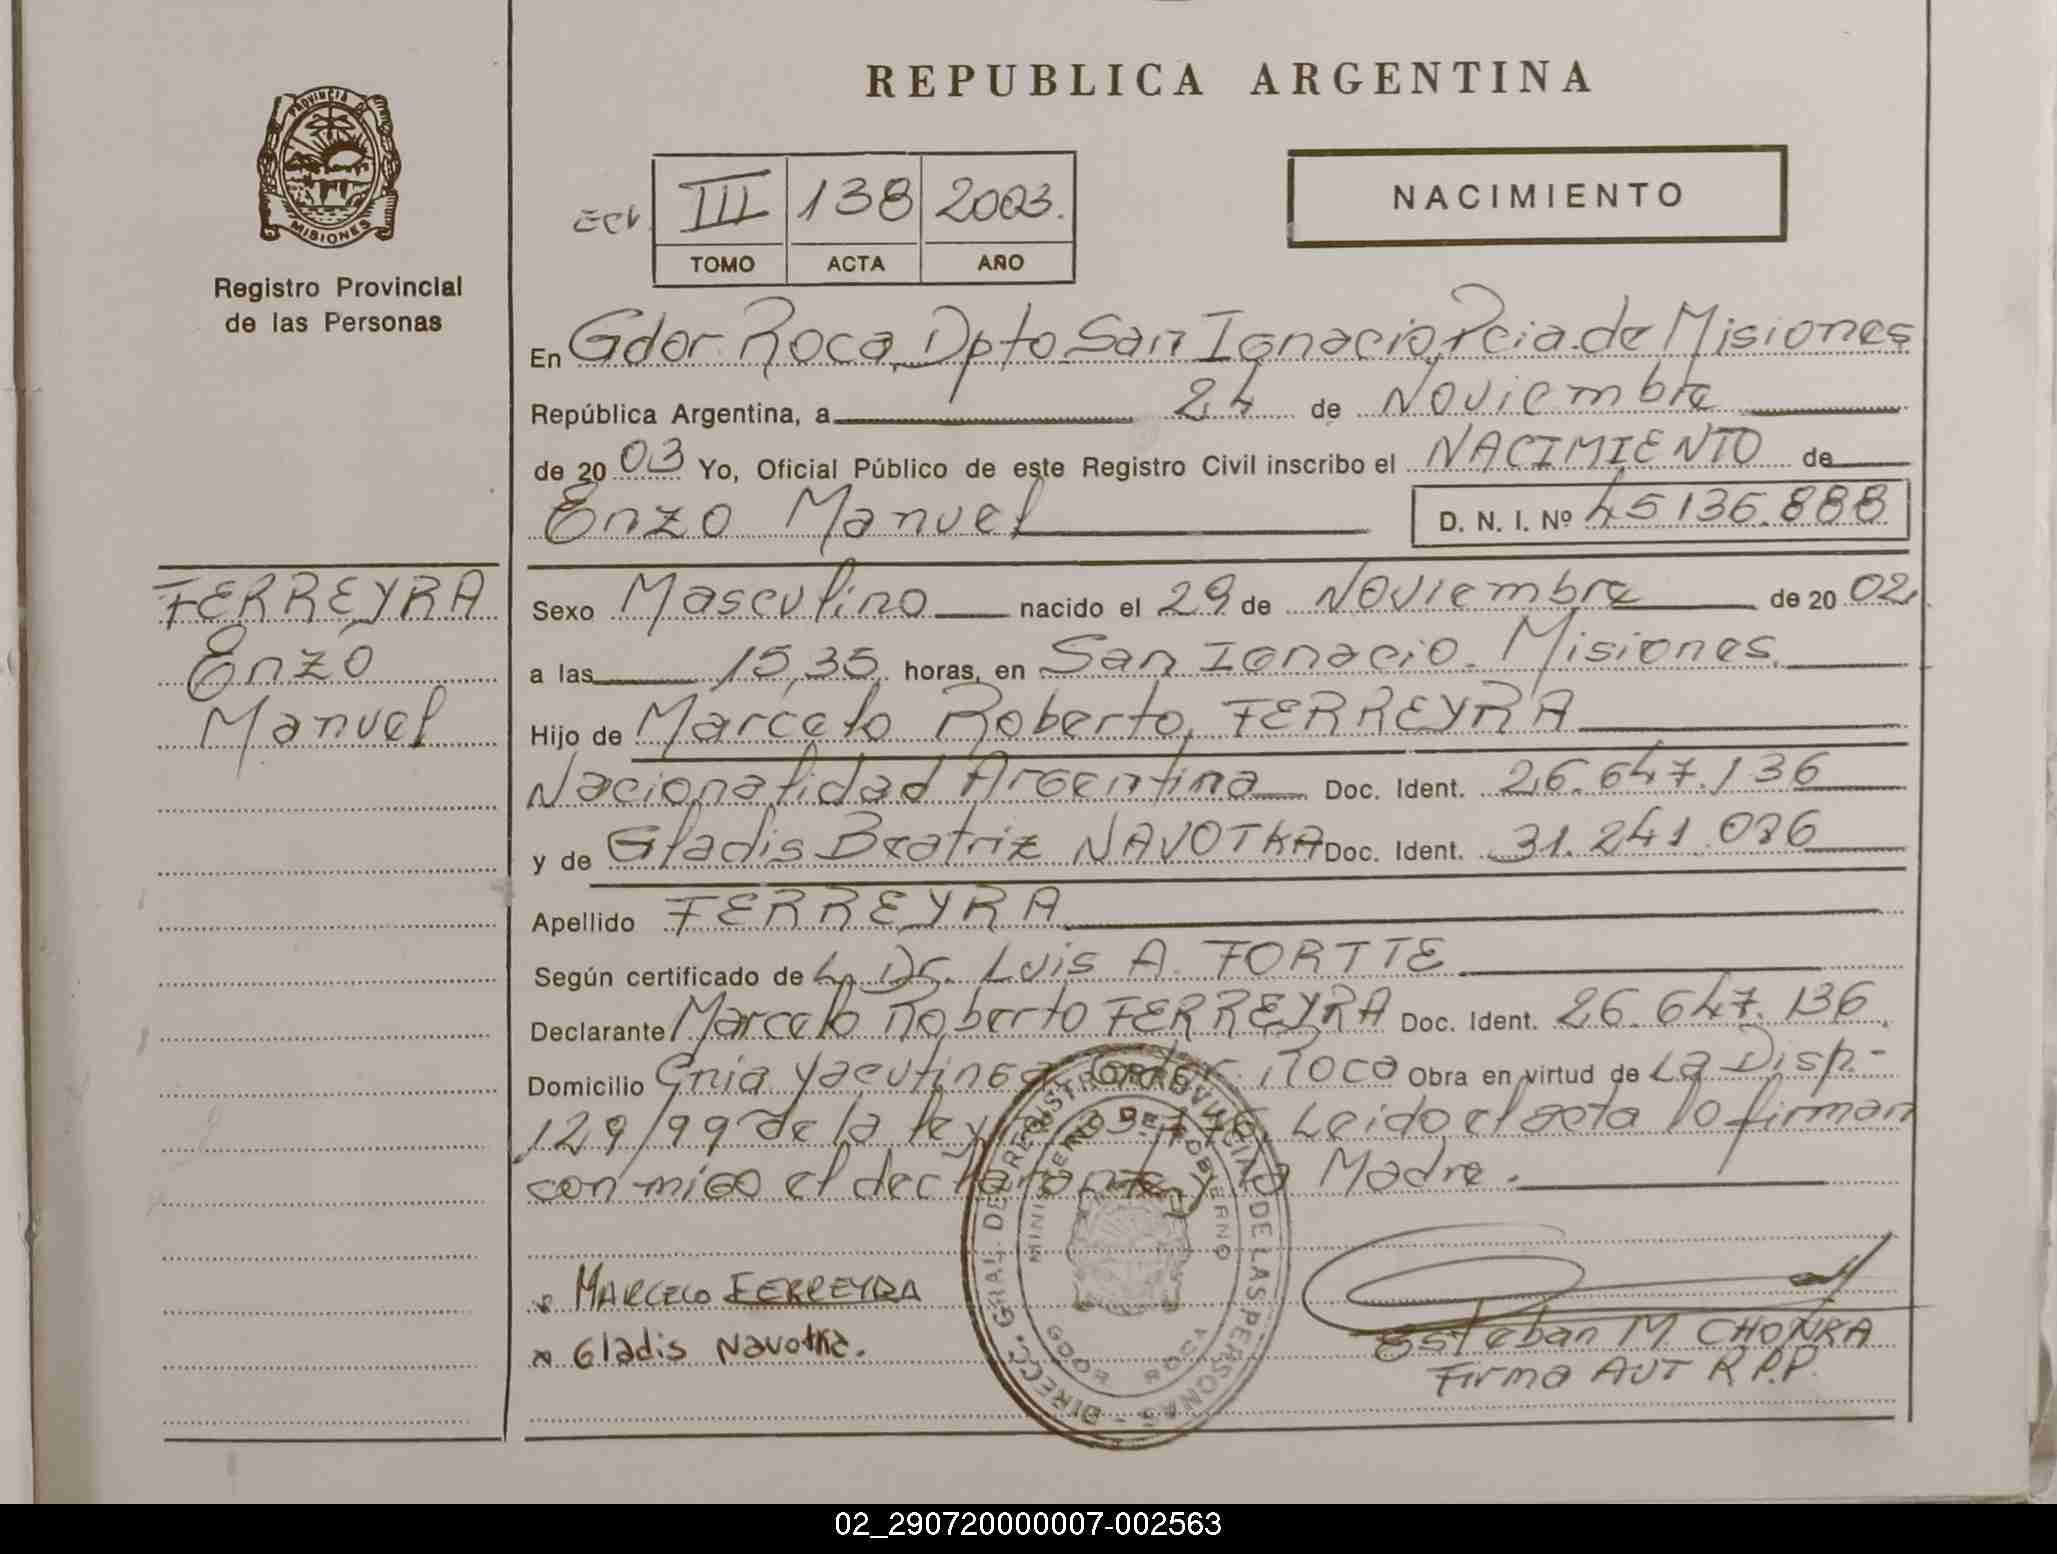 REPUBLICA ARGENTINA
PROVINCIA DE
MISIONES
Registro Provincial
de las Personas
III 138 2003.
TOMO ACTA AÑO
NACIMIENTO
En Gdor. Roca, Dpto San Ignacio, Pcia. de Misiones
República Argentina, a 24 de Noviembre
de 2003 Yo, Oficial Público de este Registro Civil inscribo el NACIMIENTO de
Enzo Manuel D. N. I. Nº 45136.888
FERREYRA
Enzo
Manuel
Sexo Masculino nacido el 29 de Noviembre de 2002
a las 15,35 horas, en San Ignacio. Misiones.
Hijo de Marcelo Roberto, FERREYRA
Nacionalidad Argentina Doc. Ident. 26.647.136
y de Gladis Beatriz NAVOTKA Doc. Ident. 31.241.
Apellido FERREYRA
Según certificado de Dr. Luis A. FORTTE
Declarante Marcelo Roberto FERREYRA Doc. Ident. 26.647.136.
Domicilio Gnia Roca Obra en virtud de La Disp.-
129/99 de la ley Leido el acta lo firman
con migo el declarante y la Madre.
x MARCELO FERREYRA
x Gladis Navotka.
Esteban M. CHONKA
Firma AUT R.P.P.
DIRECC. GRAL. DE REGISTRO PROVINCIAL DE LAS PERSONAS
MINISTERIO DE GOBIERNO
GDOR ROCA
02_290720000007-002563